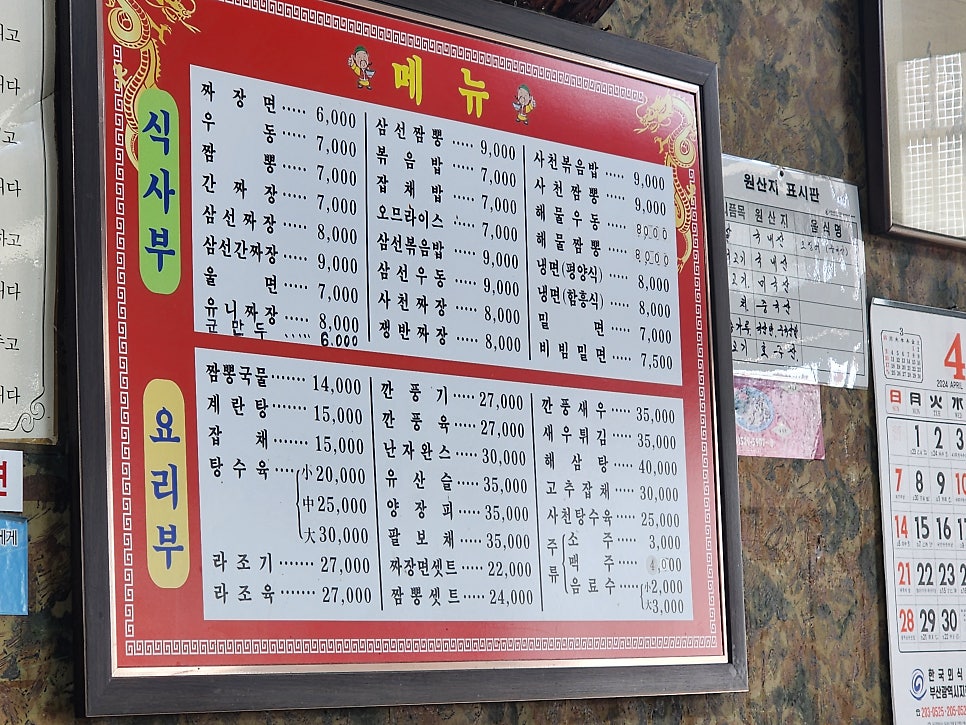 메뉴
식사부
짜장면 ····· 6,000
우동 ····· 7,000
짬뽕 ····· 7,000
간짜장 ····· 7,000
삼선짜장 ····· 8,000
삼선간짜장 ····· 9,000
울면 ····· 7,000
유니짜장 ····· 8,000
군만두 ····· 6,000
삼선짬뽕 ····· 9,000
볶음밥 ····· 7,000
잡채밥 ····· 7,000
오므라이스 ····· 7,000
삼선볶음밥 ····· 9,000
삼선우동 ····· 9,000
사천짜장 ····· 8,000
쟁반짜장 ····· 8,000
사천볶음밥 ····· 9,000
사천짬뽕 ····· 9,000
해물우동 ····· 8000
해물짬뽕 ····· 8000
냉면(평양식) ····· 8,000
냉면(함흥식) ····· 8,000
밀면 ····· 7,000
비빔밀면 ····· 7,500
요리부
짬뽕국물 ······· 14,000
계란탕 ······· 15,000
잡채 ······· 15,000
탕수육 ····· 小 20,000
中 25,000
大 30,000
라조기 ······· 27,000
라조육 ······· 27,000
깐풍기 ····· 27,000
깐풍육 ····· 27,000
난자완스 ····· 30,000
유산슬 ····· 35,000
양장피 ····· 35,000
팔보채 ····· 35,000
짜장면셋트 ····· 22,000
짬뽕셋트 ····· 24,000
깐풍새우 ····· 35,000
새우튀김 ····· 35,000
해삼탕 ····· 40,000
고추잡채 ····· 30,000
사천탕수육 ····· 25,000
주류
소주 ····· 3,000
맥주 ····· 4,000
음료수 ····· 小 2,000
大 3,000
원산지 표시판
원산지 음식명
국내산
미국산
중국산
호주산
3
4
2024 APRIL
日 月 火 水
SUN MON TUE WED
1 2 3
7 8 9 10
14 15 16 17
21 22 23
28 29 30
한국외식
부산광역시지